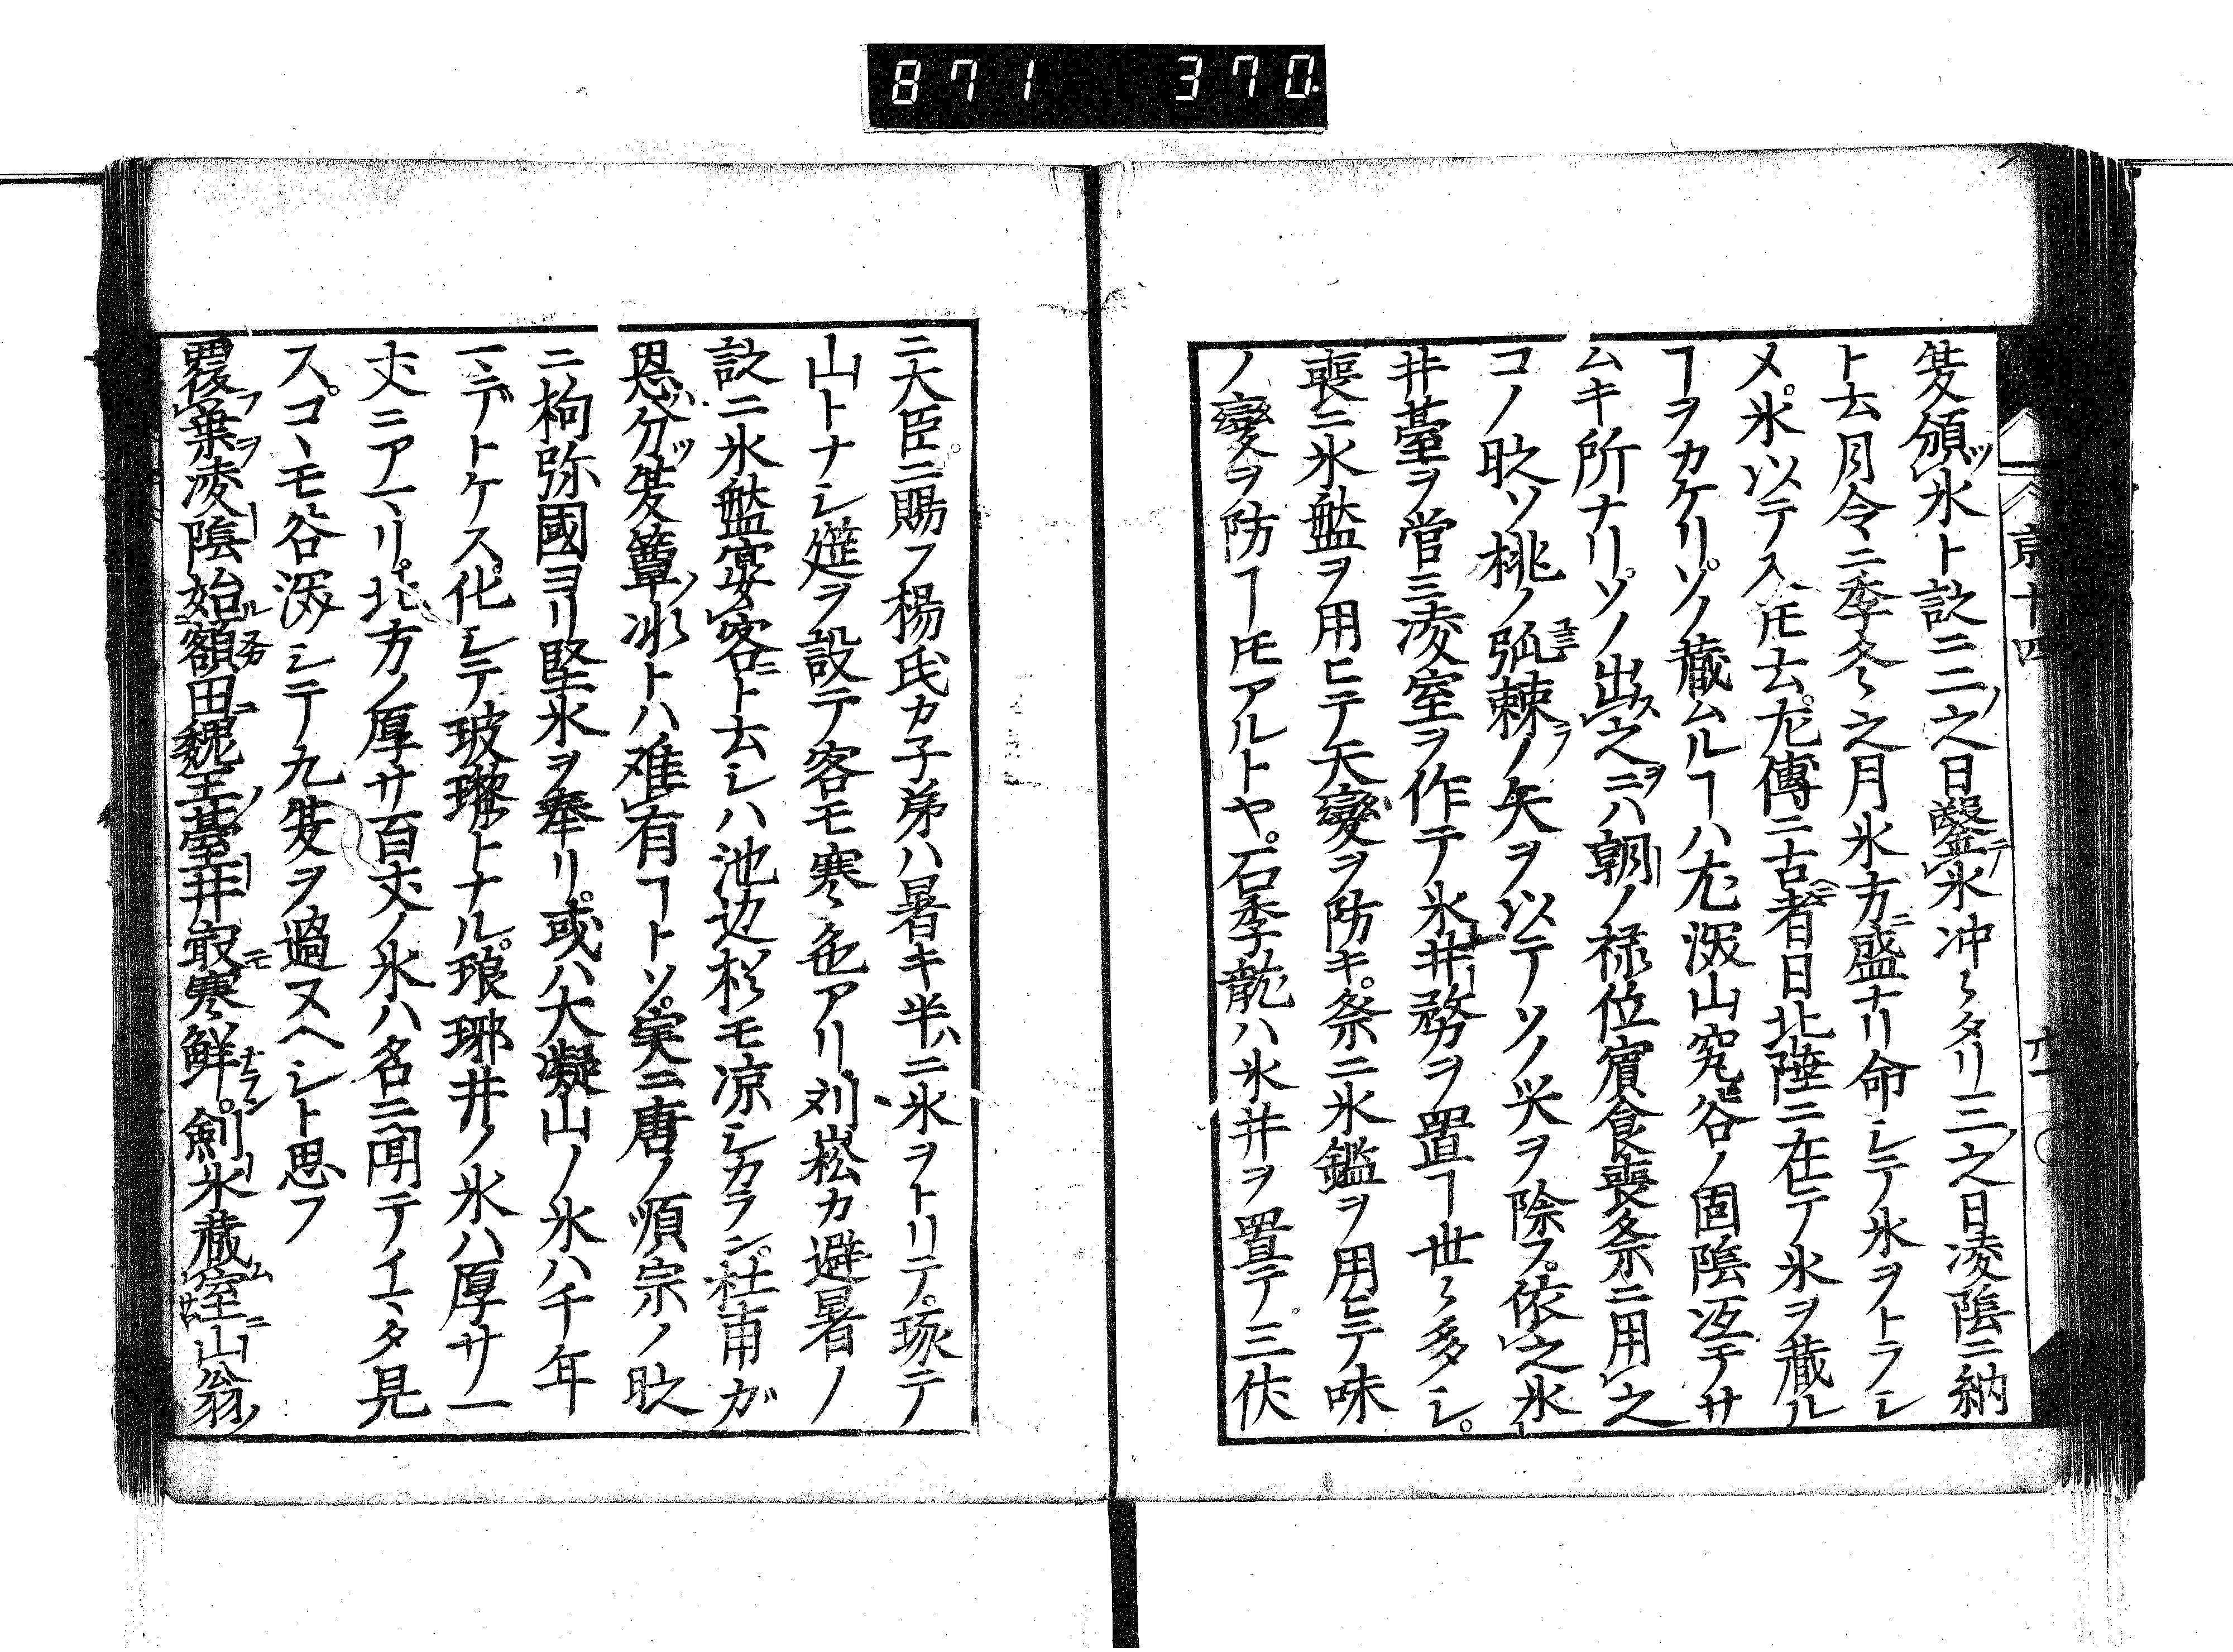 871 370
京十四
夏頒氷ト詩ニ二之日鑿氷冲々タリ三之日凌陰ニ納
ト云月令ニ季冬之月氷方盛ナリ命シテ氷ヲトラシ
メ氷以テ入トモ云左傳ニ古者日北陸ニ在テ氷ヲ蔵ル
ヿヲカケリソノ蔵ムルヿハ尤深山窮谷ノ固陰冱テサ
ムキ所ナリソノ出之ニハ朝ノ禄位賓食喪祭ニ用之
コノ時ソ桃ノ弧棘ノ矢ヲ以テソノ災ヲ除フ依之氷
井臺ヲ営ミ凌室ヲ作テ氷井務ヲ置ヿ世々多シ
喪ニ氷盤ヲ用ヒテ天變ヲ防キ祭ニ氷鑑ヲ用ヒテ味
ノ變ヲ防ヿ𪜈アルトヤ石季龍ハ氷井ヲ置テ三伏
ニ大臣ニ賜フ楊氏カ子弟ハ暑キ半ニ氷ヲトリテ琢テ
山トナシ筵ヲ設テ客モ寒色アリ刘崧カ避暑ノ
詩ニ氷盤宴客ト云シハ池辺杉モ凉シカラン杜甫ガ
恩分夏簟冰トハ难有ヿトソ実ニ唐ノ順宗ノ時
ニ拘弥國ヨリ堅氷ヲ奉リ或ハ大凝山ノ氷ハ千年
マデトケス化シテ玻瓈トナル琅琊井ノ氷ハ厚サ一
丈ニアマリ北方ノ厚サ百丈ノ氷ハ名ニ聞テイマタ見
スコヽモ谷深シテ九夏ヲ過ヌヘシト思フ
覆葉凌陰始額田魏王臺井寂寒鮮剣氷蔵室山翁